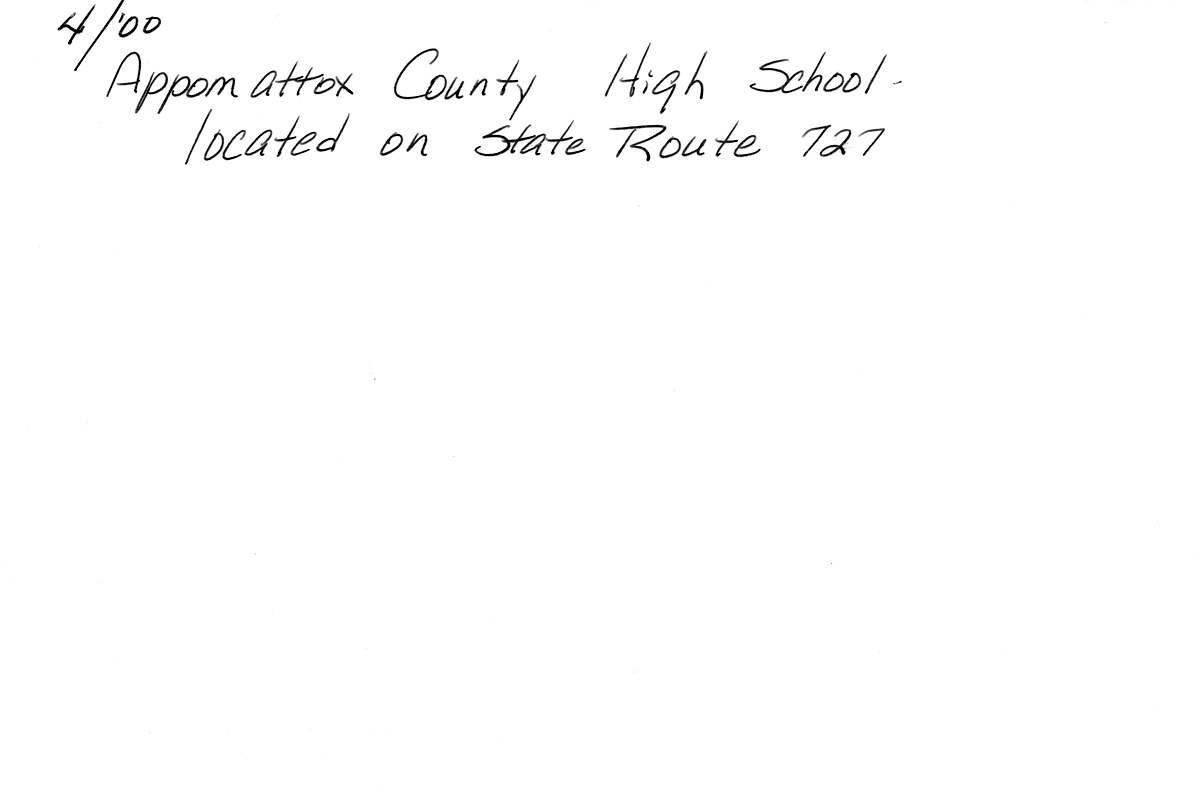 4/'00
Appomattox County High School-
located on State Route 727